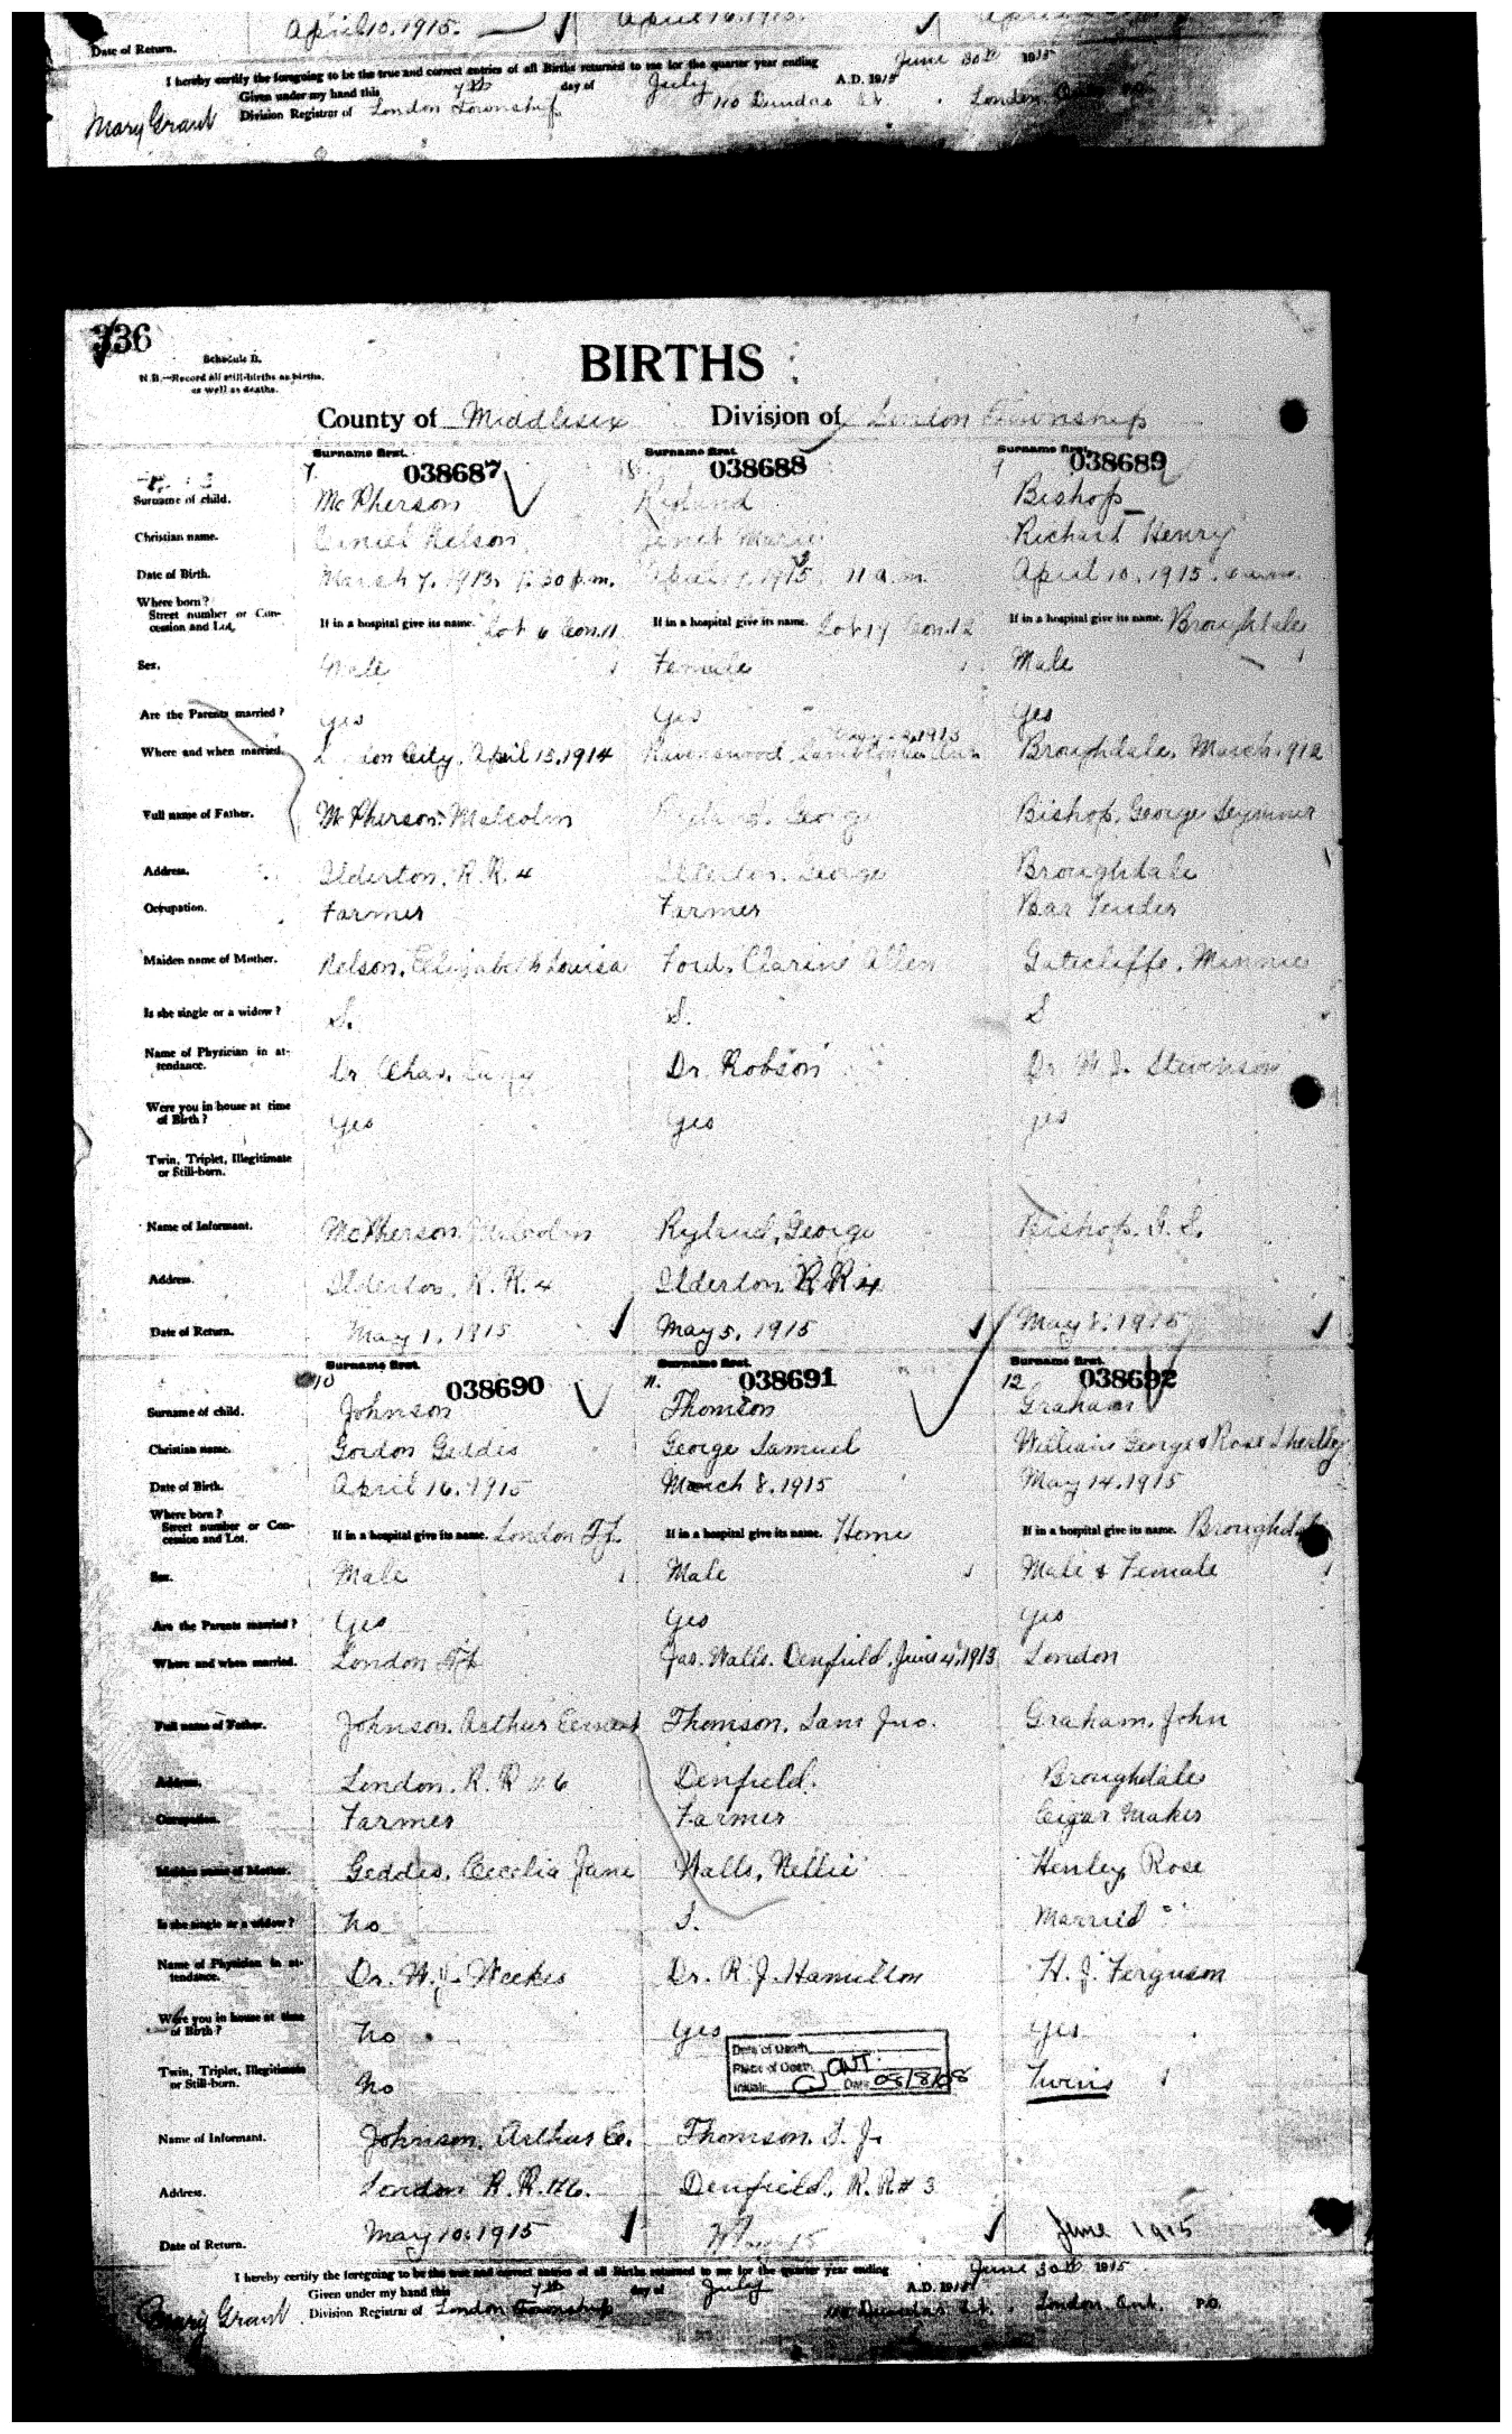 April 10, 1915.
Date of Return.
I hereby certify the foregoing to be the true and correct entries of all Births returned to me for the quarter year ending June 30th 1915
Given under my hand this 7th day of July A.D. 1915
Mary Grant Division Registrar of London Township 110 Dundas St. London
336
Schedule B.
N.B.—Record all still-births as births, as well as deaths.
BIRTHS
County of Middlesex Division of London Township
Surname first. Surname first. Surname first.
7. 038687 8. 038688 9 038689
Surname of child. McPherson Ryland Bishop
Christian name. Daniel Nelson Janet Marie Richard Henry
Date of Birth. March 7, 1913, 30 p.m. April 1915 11 a.m. April 10, 1915.
Where born?
Street number or Concession and Lot, If in a hospital give its name. Lot 6 Con. 11 If in a hospital give its name. Lot 17 Con. 12 If in a hospital give its name. Broughdale
Sex. Male Female Male
Are the Parents married? Yes Yes Yes
Where and when married. London City, April 15, 1914 Ravenswood, 1913 Broughdale, March 1912
Full name of Father. McPherson, Malcolm Ryland, George Bishop, George Seymour
Address. Ilderton, R.R. 4 Ilderton, George Broughdale
Occupation. Farmer Farmer Bar Tender
Maiden name of Mother. Nelson, Elizabeth Louisa Ford, Allen Gutcliffe, Minnie
Is she single or a widow? S. S. S
Name of Physician in attendance. Dr. Chas. Dr. Robson Dr. W. J. Stevenson
Were you in house at time of Birth? Yes Yes yes
Twin, Triplet, Illegitimate or Still-born.
Name of Informant. McPherson, Malcolm Ryland, George Bishop, G. S.
Address. Ilderton, R.R. 4 Ilderton R R 4
Date of Return. May 1, 1915 May 5, 1915 May 8, 1915
Surname first. Surname first. Surname first.
10 038690 11. 038691 12 038692
Surname of child. Johnson Thomson Graham
Christian name. Gordon Geddis George Samuel William George & Rose Sherlly
Date of Birth. April 16, 1915 March 8, 1915 May 14, 1915
Where born?
Street number or Concession and Lot. If in a hospital give its name. London Tp. If in a hospital give its name. Home If in a hospital give its name. Broughdale
Sex. Male Male Male & Female
Are the Parents married? Yes Yes yes
Where and when married. London Tp Jas. Walls. Denfield, June 4, 1913 London
Full name of Father. Johnson, Arthur Ernest Thomson, Sam Jno. Graham, John
Address. London, R. R # 6 Denfield. Broughdale
Occupation. Farmer Farmer Cigar Maker
Maiden name of Mother. Geddes, Cecelia Jane Walls, Nellie Henley, Rose
Is she single or a widow? No S. Married
Name of Physician in attendance. Dr. W. J. Weekes Dr. R. J. Hamilton H. J. Ferguson
Were you in house at time of Birth? No Yes yes
Date of Death
Place of Death ONT.
Initials Date 08/8/08
Twin, Triplet, Illegitimate or Still-born. No Twins
Name of Informant. Johnson, Arthur E. Thomson, S. J.
Address. London R. R. #6. Denfield, R. R # 3
Date of Return. May 10, 1915 May 15 June 1915
I hereby certify the foregoing to be the true and correct entries of all Births returned to me for the quarter year ending June 30th 1915
Given under my hand this 7th day of July A.D. 1915
Mary Grant. Division Registrar of London Township 110 Dundas St. London Ont. P.O.